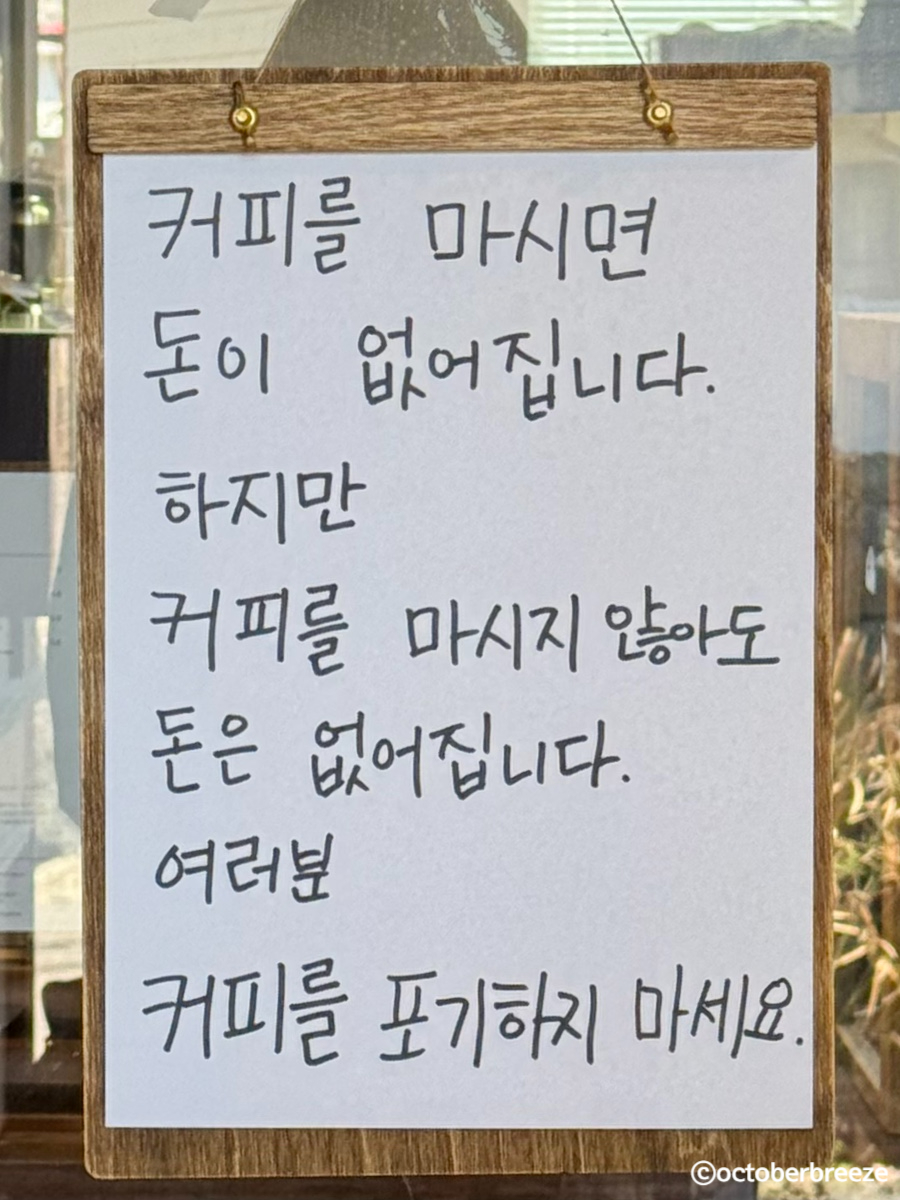 커피를 마시면
돈이 없어집니다.
하지만
커피를 마시지 않아도
돈은 없어집니다.
여러분
커피를 포기하지 마세요.
©octoberbreeze